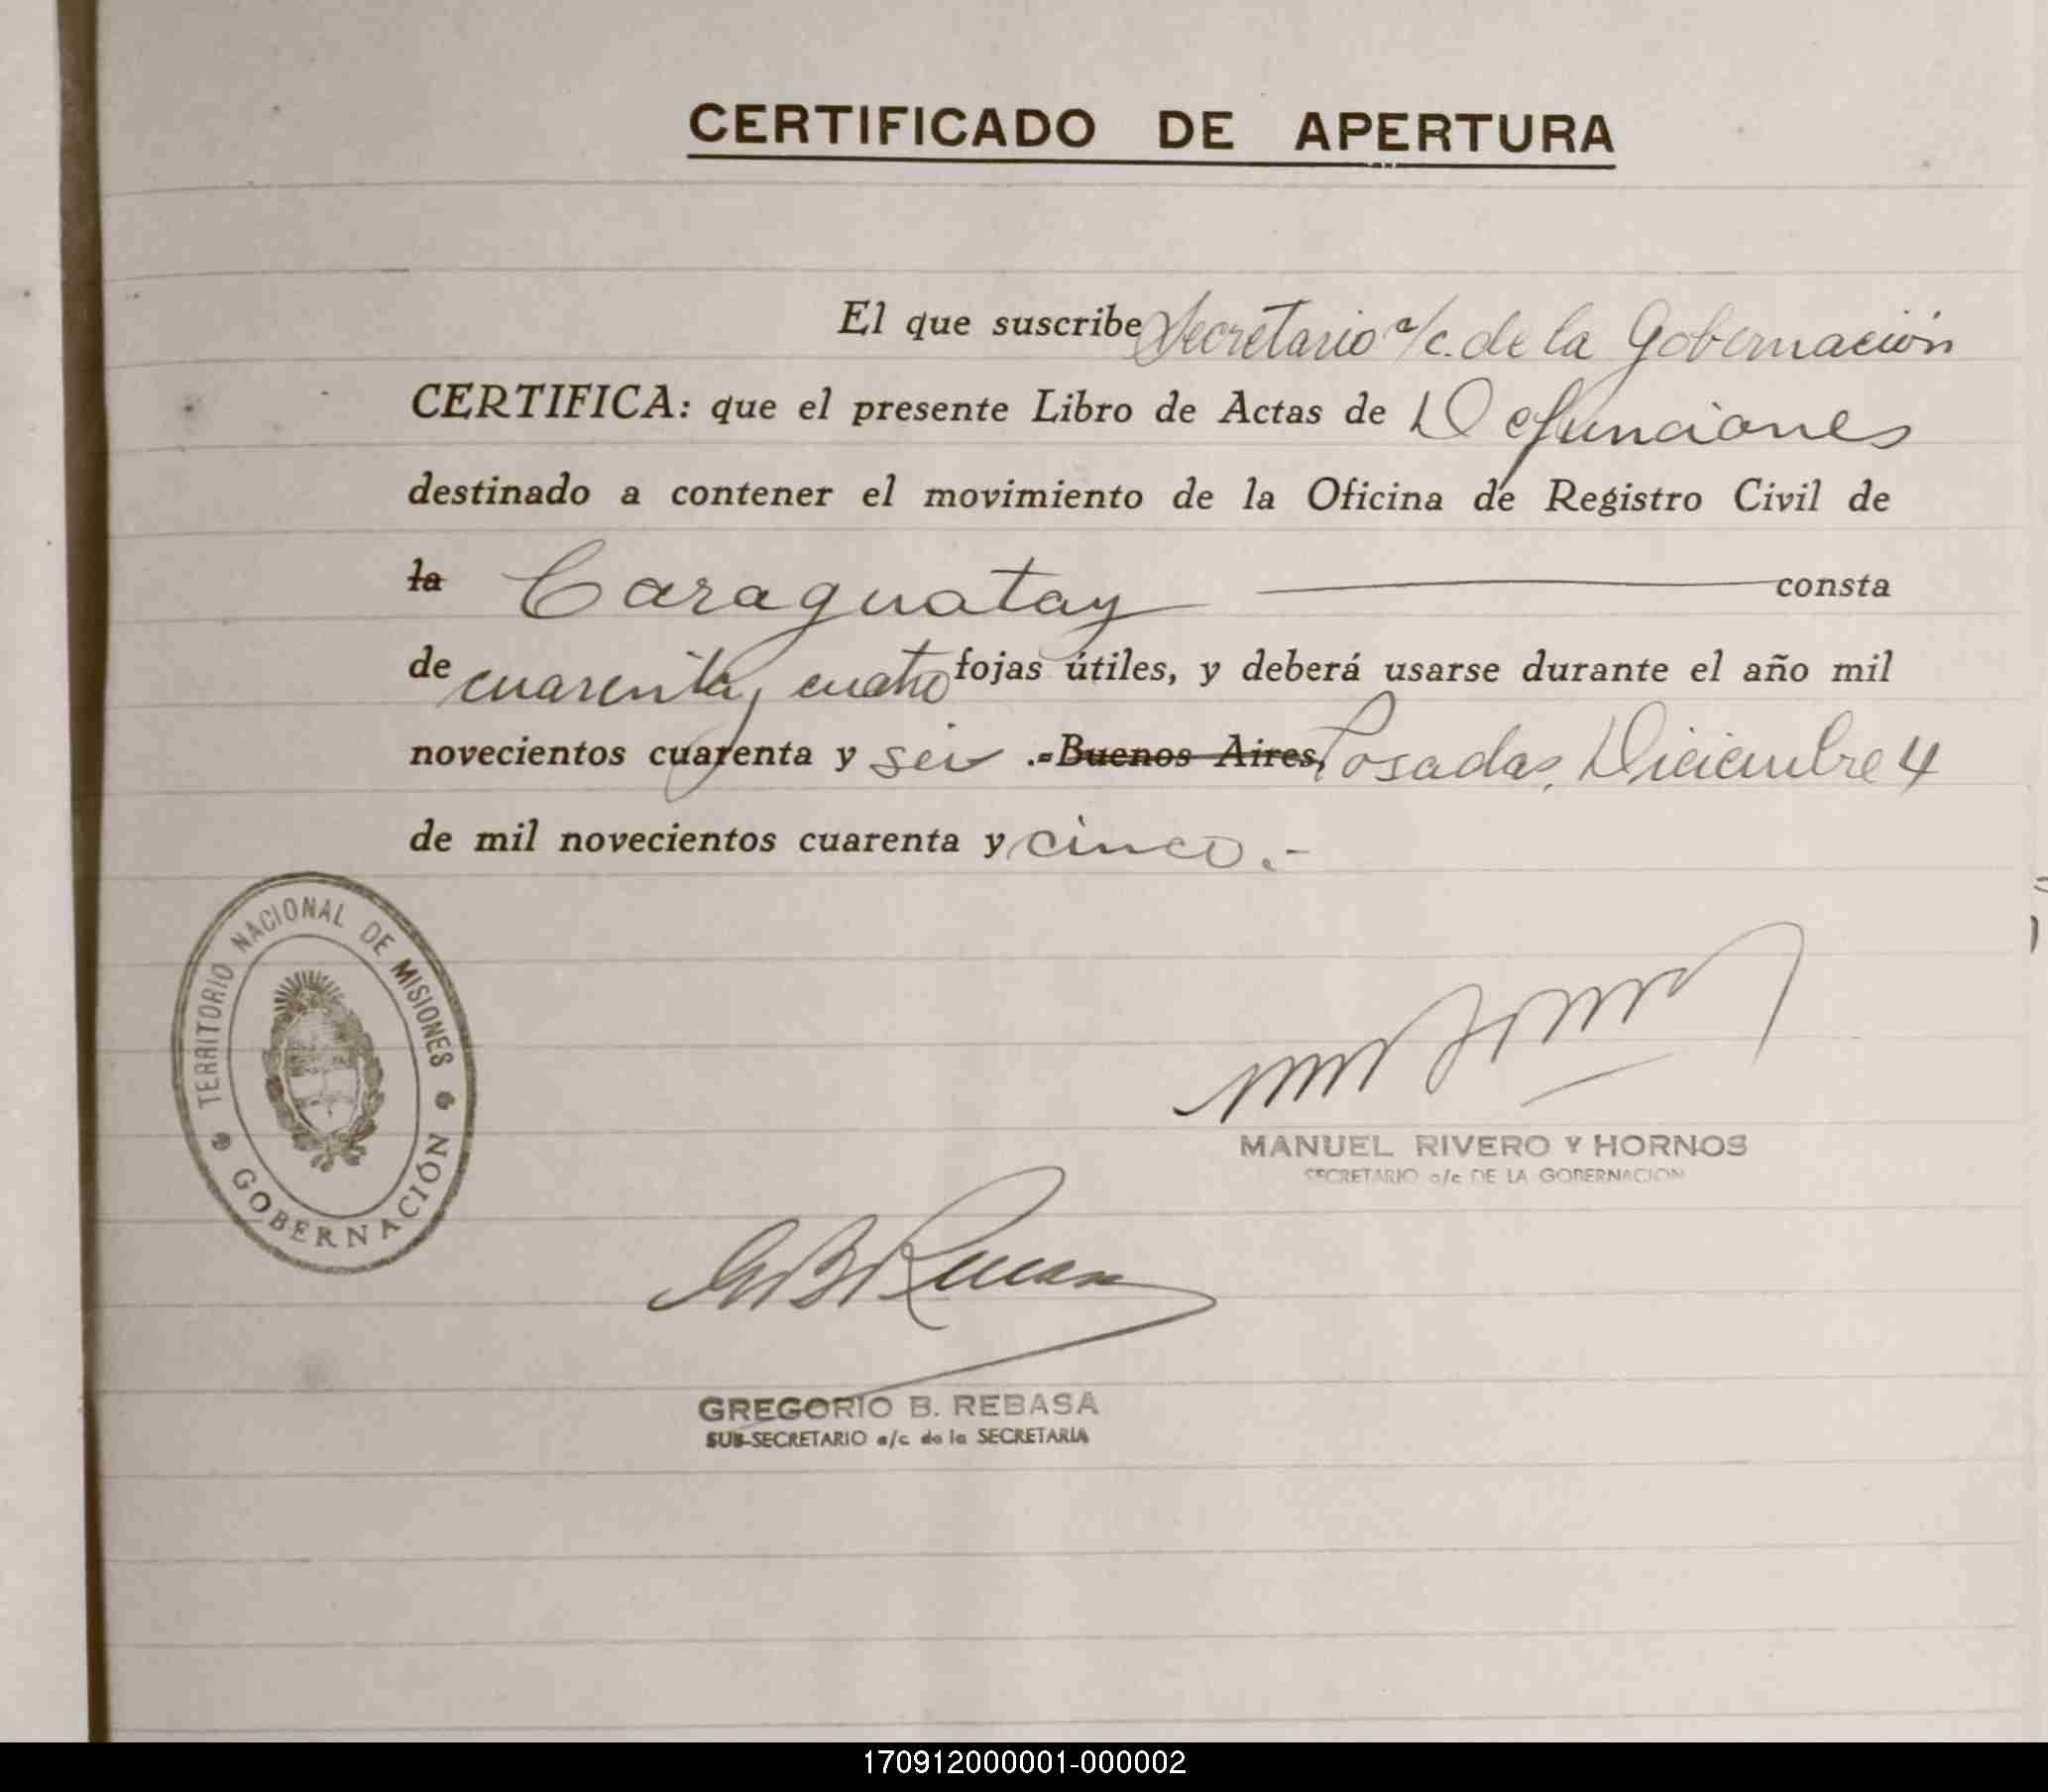 CERTIFICADO DE APERTURA
El que suscribe Secretario a/c. de la Gobernación
CERTIFICA: que el presente Libro de Actas de Defunciones
destinado a contener el movimiento de la Oficina de Registro Civil de
la Caraguatay consta
de cuarenta y cuatro fojas útiles, y deberá usarse durante el año mil
novecientos cuarenta y seis .-Buenos Aires, Posadas, Diciembre 4
de mil novecientos cuarenta y cinco.-
TERRITORIO NACIONAL DE MISIONES
GOBERNACIÓN
MANUEL RIVERO Y HORNOS
SECRETARIO a/c DE LA GOBERNACION
GREGORIO B. REBASA
SUB-SECRETARIO a/c de la SECRETARIA
170912000001-000002